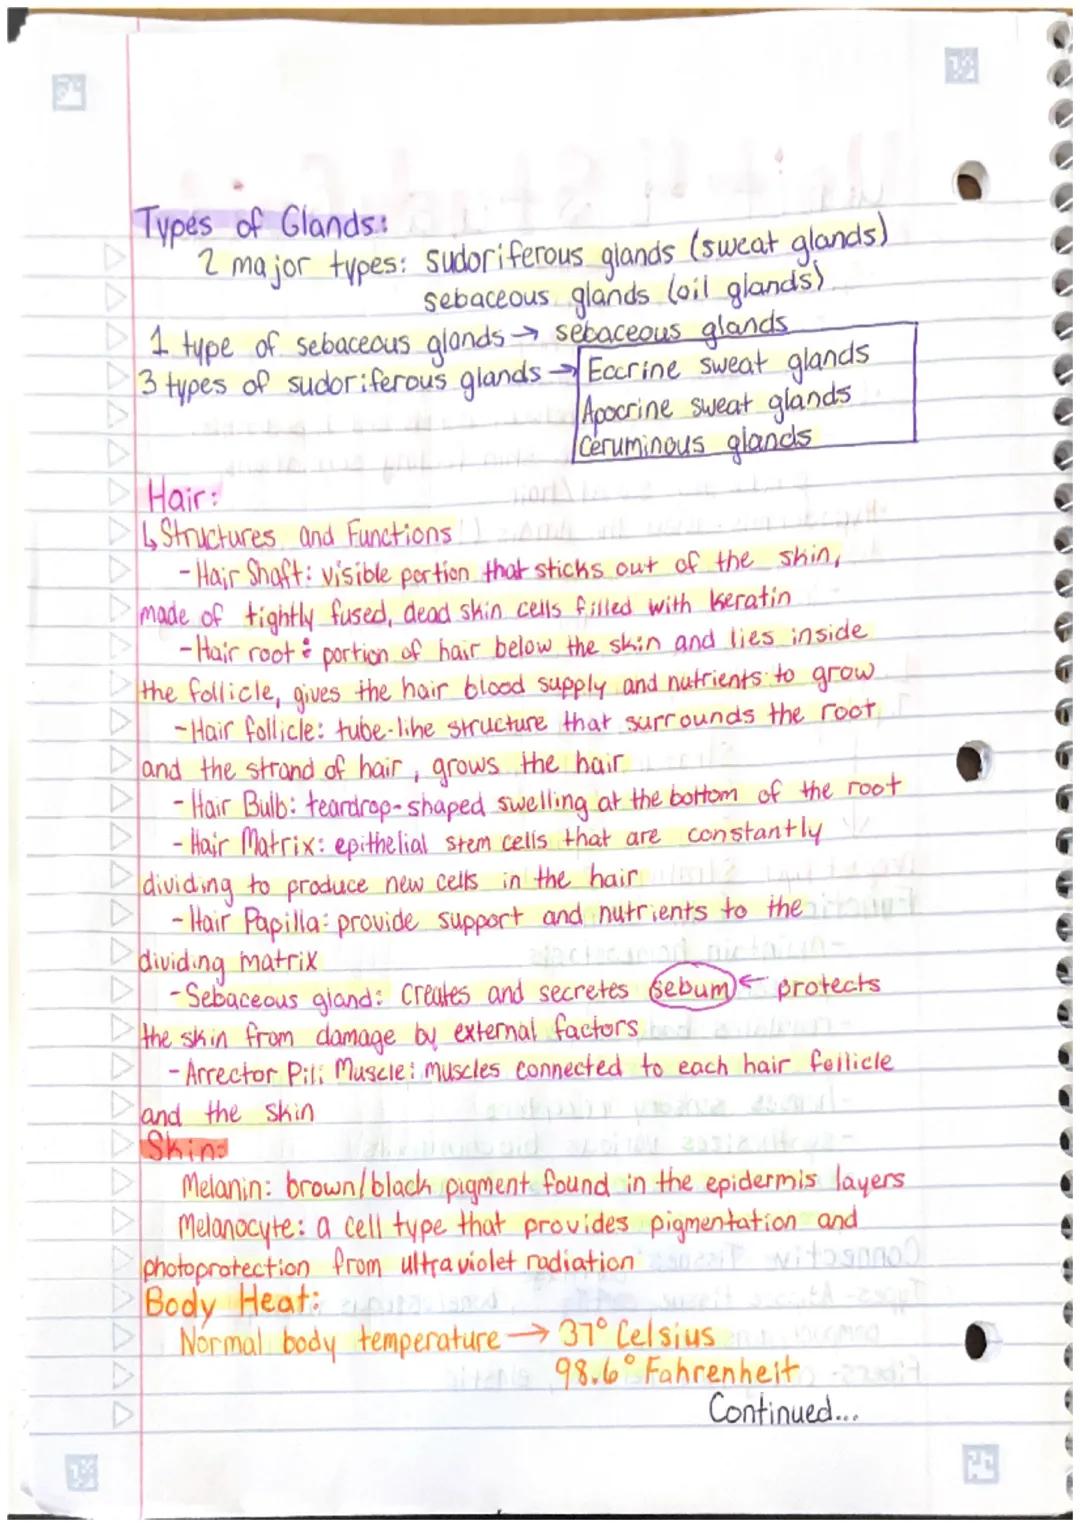 Types of Glands:
2 major types: sudoriferous glands (sweat glands)
sebaceous glands (oil glands)
1 type of sebaceous glands → sebaceous glands
3 types of sudoriferous glands → Eccrine sweat glands
Apocrine sweat glands
Ceruminous glands
Hair:
↳ Structures and Functions
- Hair Shaft: visible portion that sticks out of the skin,
made of tightly fused, dead skin cells filled with keratin
- Hair root: portion of hair below the skin and lies inside
the follicle, gives the hair blood supply and nutrients to grow
- Hair follicle: tube-like structure that surrounds the root
and the strand of hair, grows the hair
- Hair Bulb: teardrop-shaped swelling at the bottom of the root
- Hair Matrix: epithelial stem cells that are constantly
dividing to produce new cells in the hair
- Hair Papilla: provide support and nutrients to the
dividing matrix
- Sebaceous gland: creates and secretes sebum ← protects
the skin from damage by external factors
- Arrector Pili Muscle: muscles connected to each hair follicle
and the skin
Skin:
Melanin: brown/black pigment found in the epidermis layers
Melanocyte: a cell type that provides pigmentation and
photoprotection from ultraviolet radiation
Body Heat:
Normal body temperature → 37° Celsius
98.6° Fahrenheit
Continued...